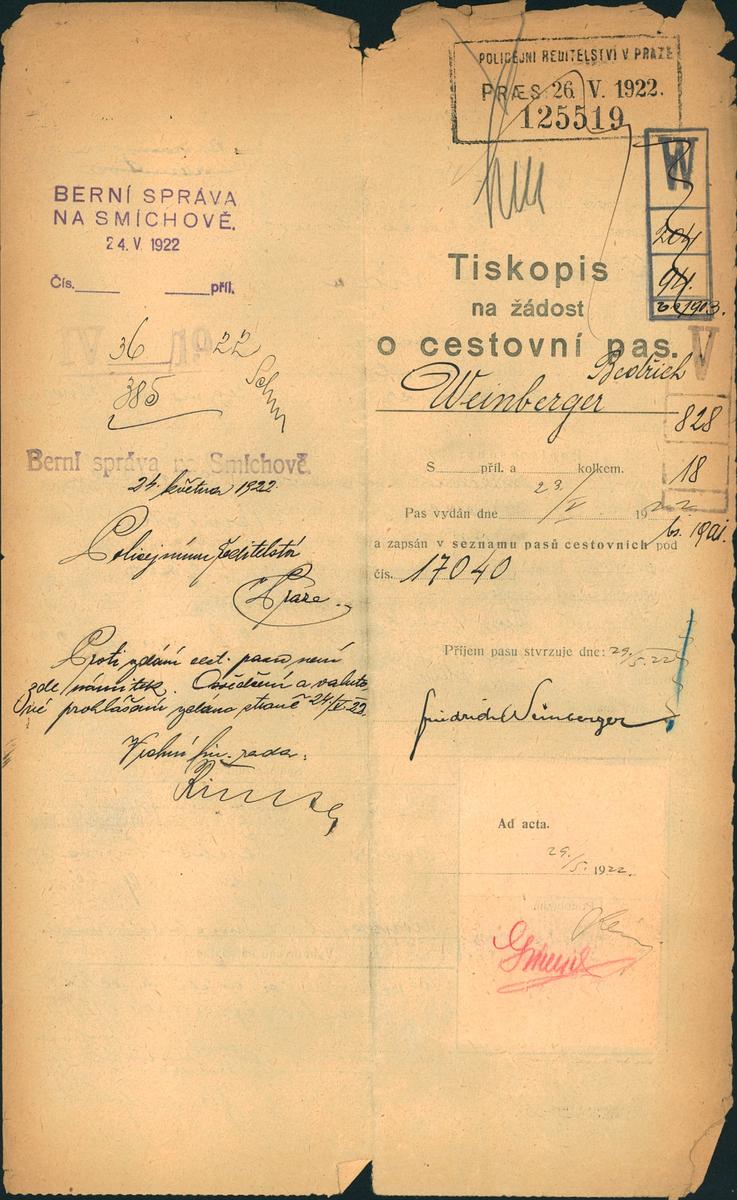 BERNÍ SPRÁVA
NA SMÍCHOVĚ.
24. V. 1922
Čís. příl.
36 22
385
Berní správa na Smíchově.
24. května 1922
Policejnímu ředitelství
Praze.
Proti vydání cest. pasu není
zde námitek. Osvědčení a valuto
vé prohlášení vydáno straně 24/V. 22.
Vrchní fin. rada:
POLICEJNÍ ŘEDITELSTVÍ V PRAZE
PRÆS. 26. V. 1922.
125519
W
204
94.
1903.
Tiskopis
na žádost
o cestovní pas.
V
Weinberger Bedřich
828
S příl. a kolkem.
18
Pas vydán dne 23/V. 1922
a zapsán v seznamu pasů cestovních pod
1901.
čís. 17040
Příjem pasu stvrzuje dne: 29/5. 22
Friedrich Weinberger
Ad acta.
29./5. 1922.